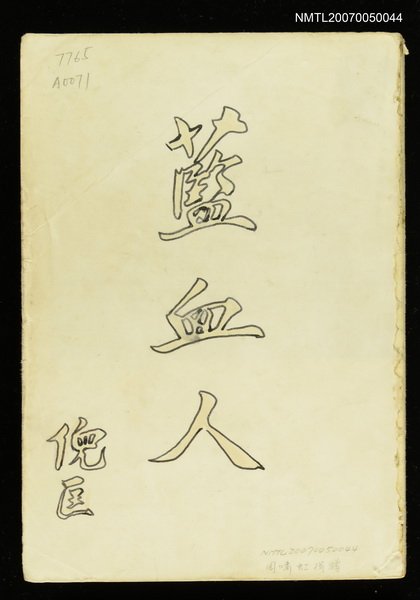 NMTL20070050044
7765
A0071
藍血人
倪匡
NMTL20070050044
周嘯虹捐贈